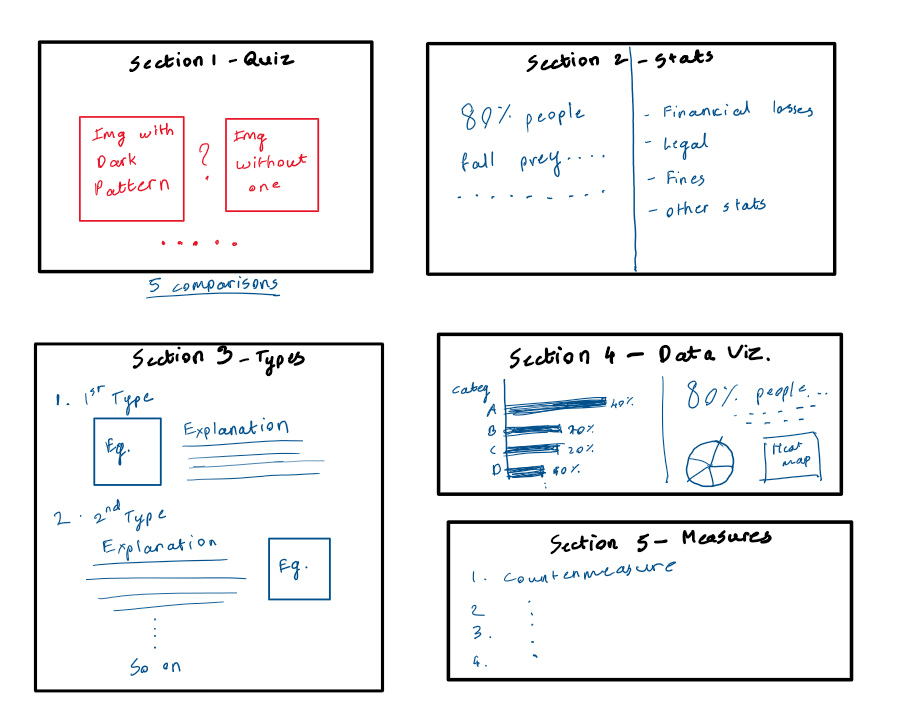 Section 1 - Quiz
Img with
Dark
Pattern
?
Img
without
one
.....
5 comparisons
Section 2 - Stats
80% people
fall prey....
- Financial losses
- Legal
- Fines
- other stats
Section 3 - Types
1. 1st Type
Eg.
Explanation
2. 2nd Type
Explanation
Eg.
So on
Section 4 - Data Viz.
categ
A 40%
B 20%
C 20%
D
80% people...
Heat
map
Section 5 - Measures
1. Countenmeasure
2
3.
4.